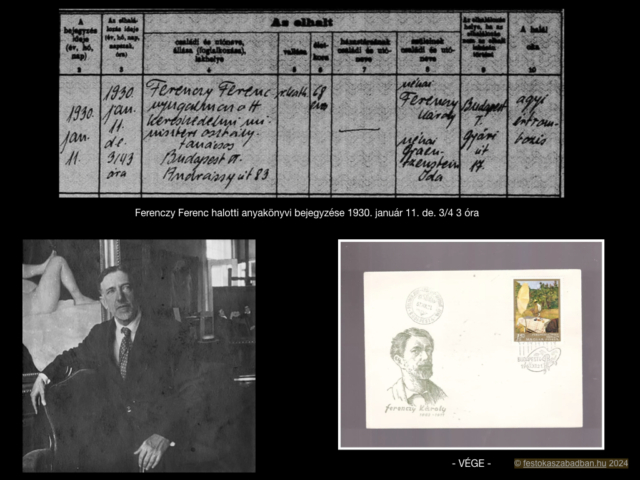 Az elhalt
A bejegyzés ideje (év, hó, nap)
Az elhalálozás ideje (év, hó, nap, napszak, óra)
családi és utóneve, állása (foglalkozása), lakhelye
vallása
életkora
házastársának családi és utóneve
szüleinek családi és utóneve
A halál oka
2 3 4 5 6 7 8 9 10
1930.
jan.
11.
1930.
jan.
11.
de.
3/4 3
óra
Ferenczy Ferenc
nyugalmazott
kereskedelmi mi-
niszteri osztály-
tanácsos
Budapest VI.
Andrássy út 83
r. kath.
68
éves
néhai
Ferenczy
Károly
néhai
Ida
Budapest
I.
Győri
út
17.
agyi
Ferenczy Ferenc halotti anyakönyvi bejegyzése 1930. január 11. de. 3/4 3 óra
ferenczy Károly
- VÉGE -
© festokaszabadban.hu 2024